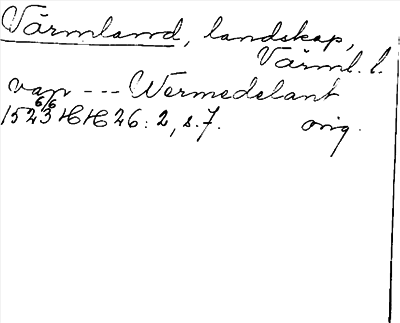 Värmland, landskap,
Värml. l.
van --- Wermedelant
1523 6/6 HH 26: 2, s. 7. orig.